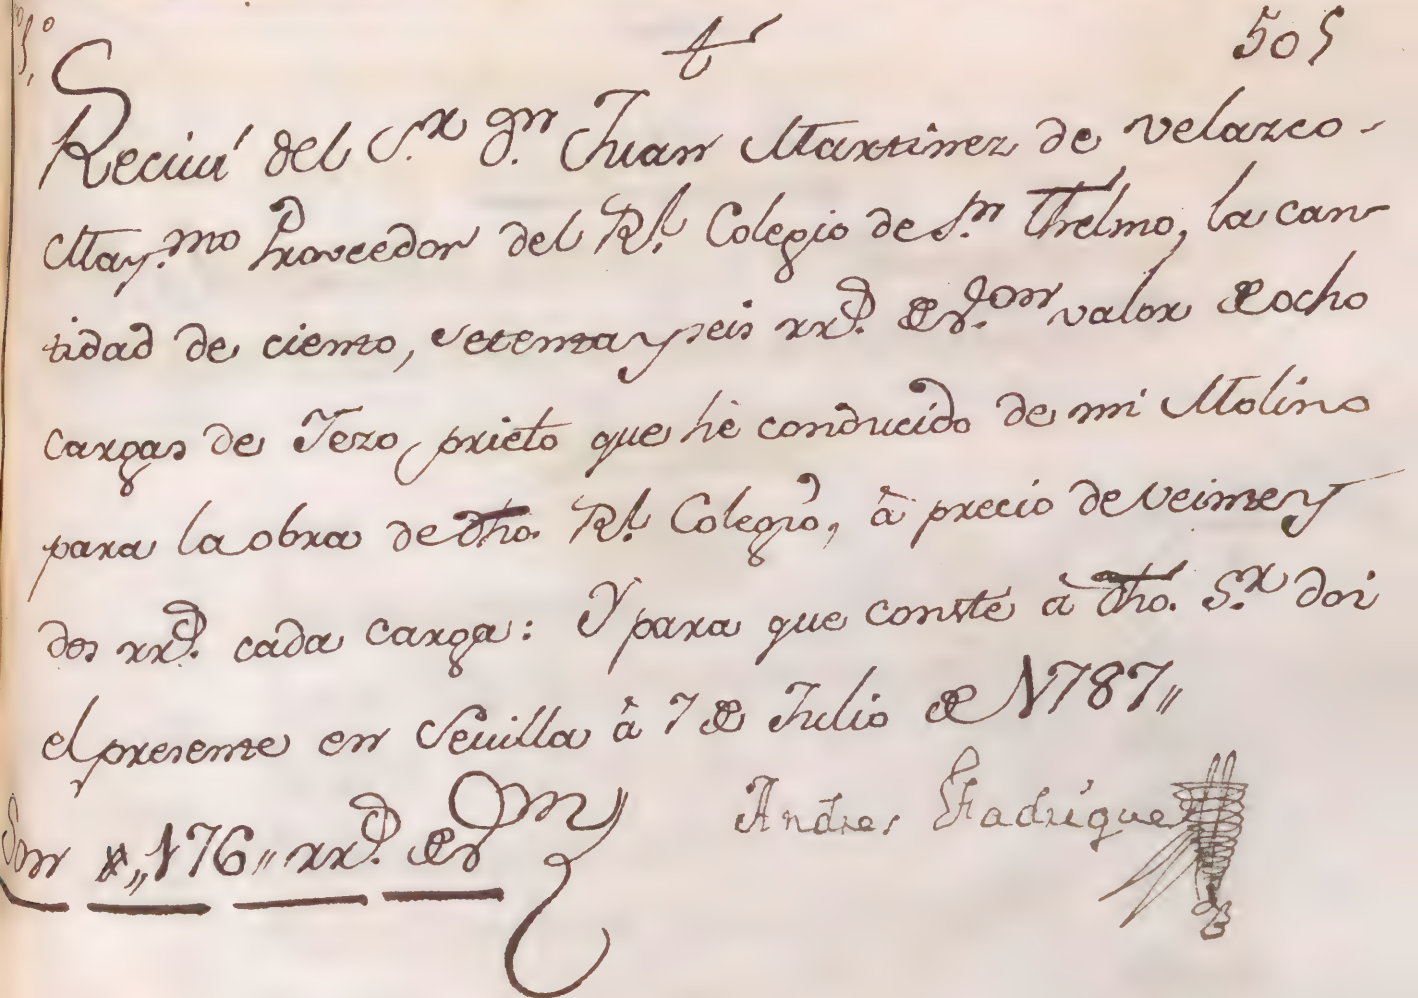 505
Reciui del S.r D.n Juan Martinez de Velazco-
May.mo Proveedor del Rl. Colegio de S.n Thelmo, la can-
tidad de ciento, setenta y seis rrs. de v.on valor de ocho
cargas de Yezo prieto que hè conducido de mi Molino
para la obra de dho. Rl. Colegio, à precio de veinte y
dos rrs. cada carga: Y para que conste à dho. S.r doi
el presente en Seuilla à 7 de Julio de 1787,,
Andres Fadrique
Son ,,176,, rrs. de v.on